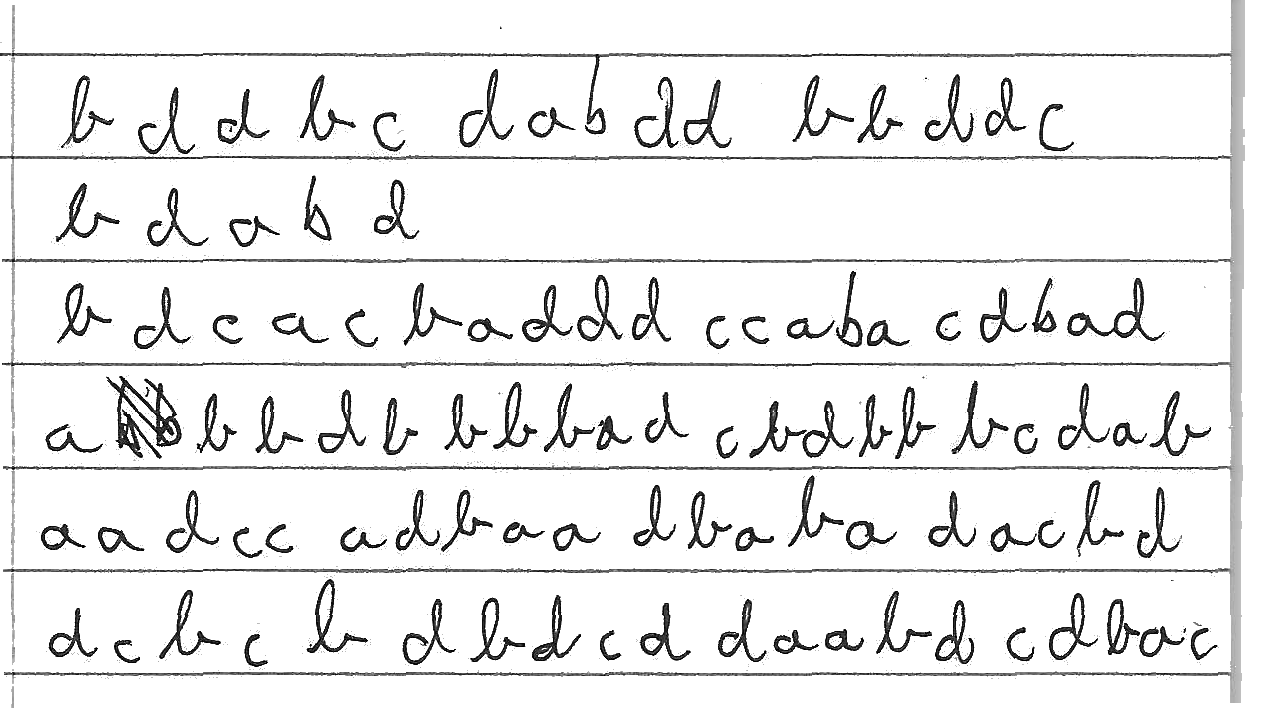 b d d b c d a b d d b b d d c
b d a b d
b d c a c b a d d d d c c a b a c d b a d
a b b d b b b b a d c b d b b b c d a b
a a d c c a d b a a d b a b a d a c b d
d c b c b d b d c d d a a b d c d b a c